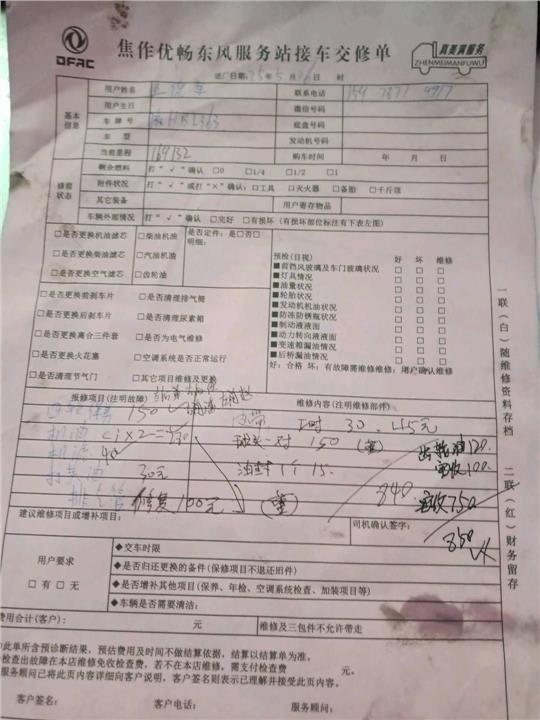 DFAC
焦作优畅东风服务站接车交修单
真美满服务
ZHENMEIMANFUWU
进厂日期: 25年 5月 16日 时
基本信息
用户姓名 联系电话 159
用户生日 微信号码
车牌号 底盘号码
车型 发动机号码
当前里程 169132 购车时间 年 月 日
修前状态
剩余燃料 打“√”确认 □0 □1/4 □1/2 □1
附件状况 打“√”或打“×”确认: □工具 □灭火器 □备胎 □千斤顶
其它装备 用户寄存物品
车辆外部情况 打“√”确认 □完好 □有损坏 (有损坏部位标注有下表左图)
□是否更换机油滤芯 □柴油机油 是否定件: 是□否□
明细:
□是否更换柴油滤芯 □汽油机油
□是否更换空气滤芯 □齿轮油
□是否更换前刹车片 □是否清理排气筒
□是否更换后刹车片 □是否清理尿素箱
□是否更换离合三件套 □是否为电气维修
□是否更换火花塞 □空调系统是否正常运行
□是否清理节气门 □其它项目维修及更换
预检(目视) 好 坏 维修
■前挡风玻璃及车门玻璃状况 □ □ □
■灯具情况 □ □ □
■油量状况 □ □ □
■轮胎状况 □ □ □
■发动机机油状况 □ □ □
■防冻防锈瓶状况 □ □ □
■制动液液面 □ □ □
■动力转向液液面 □ □ □
■变速箱漏油情况 □ □ □
■后桥漏油情况 □ □ □
好: 合格 坏: 有故障需维修维修: 用户确认维修
报修项目(注明故障) 维修内容(注明维修部件)
150 工时 30. 45元
机油 球头一对 150 齿轮油120.
机滤 40 油封1个 15. 实收100.
30元 840 实收750
排气管 修复100元 850
建议维修项目或增补项目: 司机确认签字:
用户要求
□有 □无
◆交车时限
◆是否归还更换的备件(保修项目不退还旧件)
◆是否增补其他项目(保养、年检、空调系统检查、加装项目等)
◆车辆是否需要清洁:
费用合计(客户): 元 维修及三包件不允许带走
此单所含预诊断结果,预估费用及时间不做结算依据,结算以结算单为准。
检查出故障在本店维修免收检查费,若不在本店维修,需支付检查费 元。
服务顾问已将此页内容详细向客户说明,客户签名则表示已理解并接受此页内容。
客户签名: 客户电话: 服务顾问:
一联(白)随维修资料存档
二联(红)财务留存